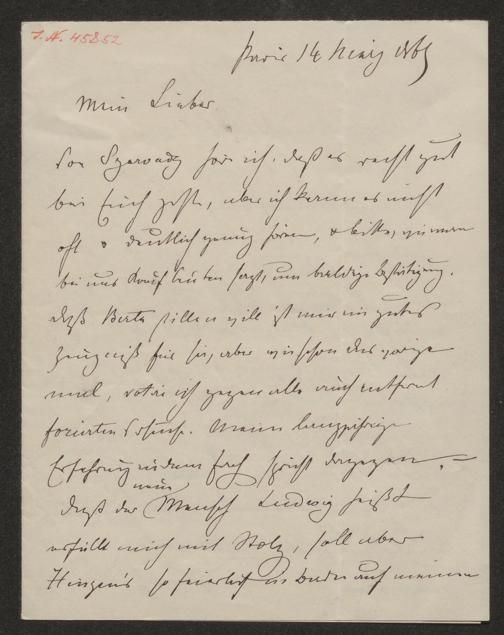 I. N. 45852
Paris 14 März 1865
Mein Lieber
Von Szarvady höre ich, daß es recht gut
bei Euch geht, aber ich kann es nicht
oft & deutlich genug hören, & bitte, wie man
bei uns drauf zu sagt, um baldige Bestätigung.
Daß Berta stillen will ist mir ein gutes
Zeugniß für sie, aber wie schon das vorige
mal, votire ich gegen alle auch entfernt
forcirten Versuche. Meine langjährige
Erfahrung in dem Fach spricht dagegen. –
Daß der neue Mensch Ludwig heißt
erfüllt mich mit Stolz, soll aber
so feierlich auf meinen